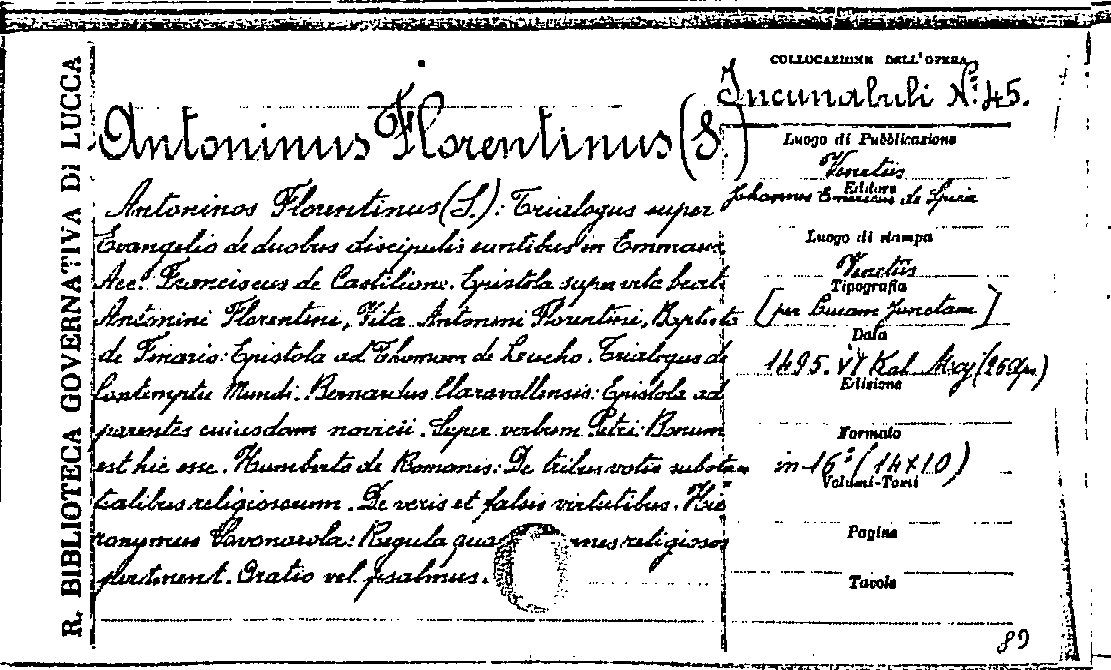 R. BIBLIOTECA GOVERNATIVA DI LUCCA
Antoninus Florentinus (S.)
Antoninos Florentinus (S.): Trialogus super
Evangelio de duobus discipulis euntibus in Emmaus
Acc. Franciscus de Castilione. Epistola super vita beati
Antonini Florentini, Vita Antonini Florentini, Baptista
de Finario: Epistola ad Thomam de Leucho. Trialogus de
Contemptu Mundi. Bernardus Claravallensis: Epistola ad
parentes cuiusdam novicii. Super verbum Petri: Bonum
est hic esse. Humberto de Romanis: De tribus votis substan
tialibus religiosum. De veris et falsis virtutibus. Hie
ronymus Savonarola: Regula religiosos
pertinent. Oratio vel psalmus.
COLLOCAZIONE DELL'OPERA
Incunabuli N.º 45.
Luogo di Pubblicazione
Venetiis
Editore
Johannes Emericus de Spira
Luogo di stampa
Venetiis
Tipografia
[per Lucam Junctam]
Data
1495. VI Kal. May (26 Apr.)
Edizione
Formato
in 16º (14x10)
Volumi-Tomi
Pagine
Tavole
89